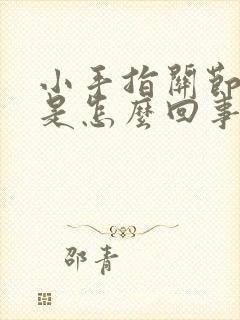 小手指關節
是怎麼回事
邵青